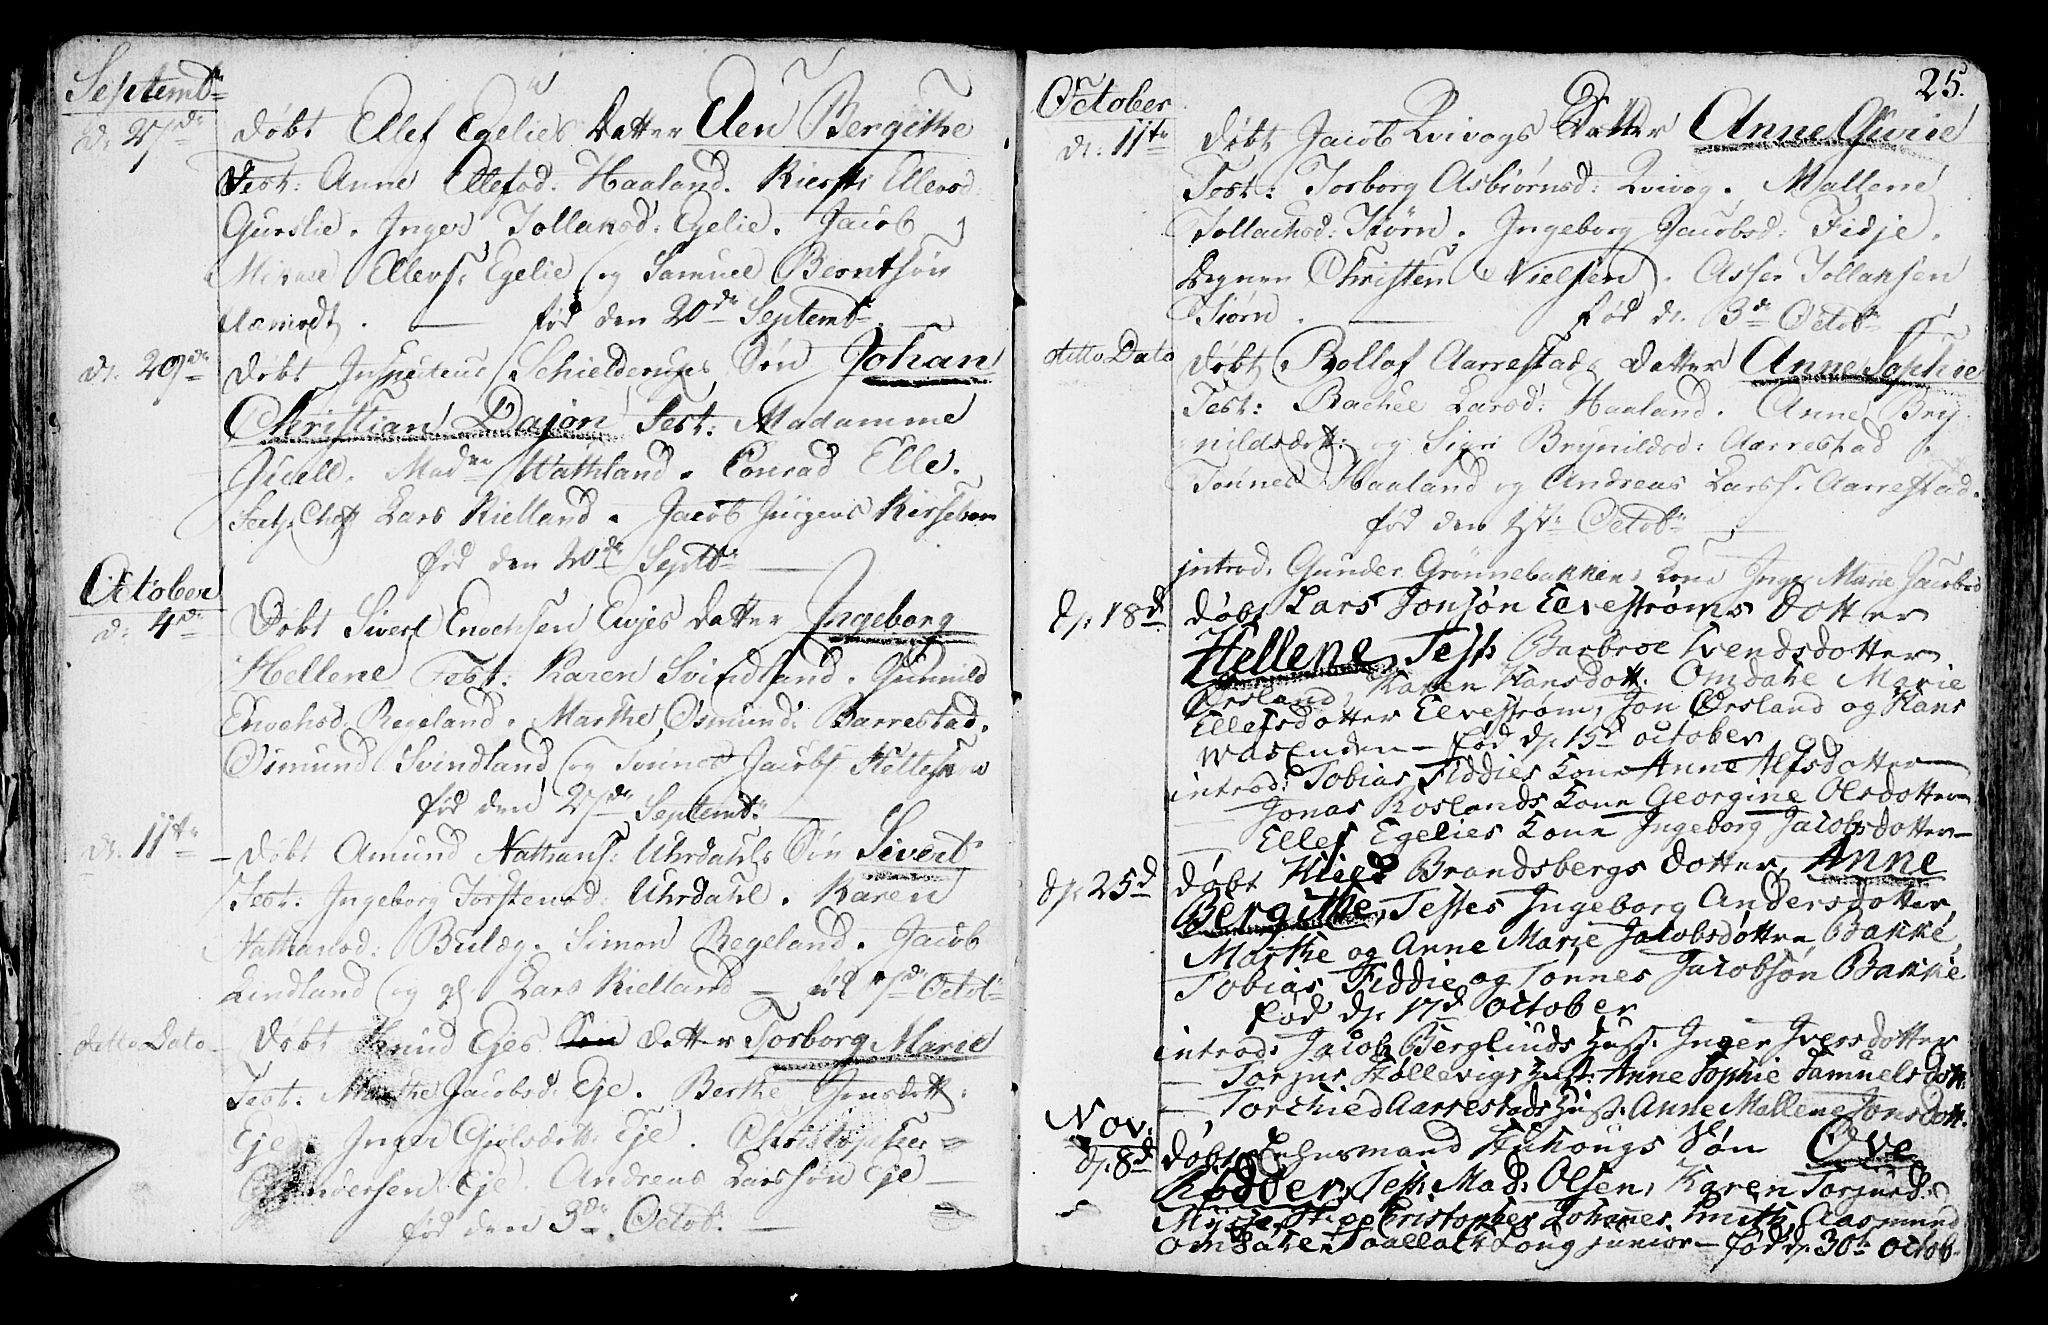 Septemb:
d: 27de
døbt Ellef Egelies Datter Elen Bergithe
Test: Anne Ellefsd: Haaland. Kiersti Ellevsd:
Gurslie. Inger Tollaksd: Egelie. Jacob
Ellevs: Egelie og Samuel Berntsøn
Aamodt. — fød den 20de Septemb:
d: 29de
døbt Inspecteur Schielderups Søn Johan
Christian Dajon Test: Madamme
Juell. Madme Wathland. Conrad Elle.
Lars Kielland. Jacob Jürgens
fød den 20de Septb:
October
d: 4de
Døbt Sivert Enochsen Eiejes datter Ingeborg
Hellene Test: Karen Svindland. Gunnild
Enochsd: Regeland. Marthe Osmunds: Barrestad.
Osmund Svindland og Tønnes Jacobs:
fød den 27de Septemb:
d: 11te
døbt Amund Nathans: Uhrdahls Søn Sivert
Test: Ingeborg Torstensd: Uhrdahl. Karen
Nathansd: Bulæg. Simon Regeland. Jacob
Lindland og gl: Lars Kielland — 7de Octob:
ditto Dato
Døbt Knud Ejes Søn datter Torborg Marie
Test. Marthe Jacobsd: Eje. Berthe Jensdatt:
Eje. Inger Gjølsdatt: Eje. Christopher
Gundersen Eje. Andreas Larssøn Eje —
fød den 3de Octob: —
25.
October
d: 11te
Døbt Jacob Qvivogs Datter Anne Gurie
Test: Torborg Asbiørnsd: Qvivog. Mallene
Tollachsd: Størn. Ingeborg Jacobsd: Fidje.
Degnen Christen Nielsen. Asser Tollaksen
Stiørn. — fød d: 3de Octob:
ditto Dato
døbt Rollof Aarrestads datter Anne Sophie
Test: Rachel Larsd: Haaland. Anne Bry-
nildsdatt: og Sigri Brynildsd: Aarrestad
Tønnes Haaland og Andreas Larss: Aarrestad.
fød den Octob:
introd: Gunder Grønnebakkens Kone Inger Marie Jacobsd
d: 18d
døbt Lars Jonsøn Elvestrøms Dotter
Hellene, Test: Barbroe Svendsdotter
Ørsland, Karen Hansdott: Omdahl Marie
Ellefsdotter Elvestrøm, Jon Ørsland og Hans
Wasenden — fød d: 15d october
introd: Tobias Fiddies Kone Anne Alfsdotter —
Jonas Roslands Kone Georgine Olsdotter
— Ellef Egelies Kone Ingeborg Jacobsdotter —
d: 25d
døbt Niels Brandsbergs Dotter, Anne
Bergithe, Testes Ingeborg Andersdotter,
Marthe og Anne Marie Jacobsdøttre Bakke,
Tobias Fiddie og Tønnes Jacobsøn Bakke
fød d: 17d october
introd: Jacob Berglunds Hust: Inger Iversdotter
— Torjus Støllevigs Hust: Anne Sophie Samuelsdott:
— Torchied Aarrestads Hust: Anne Mallene Jonsdott:
Nov:
d: 8d
døbt Lehnsmand Stuhougs Søn Ove
Rødder, Test: Mad: Olsen, Karen Torjusd:
Christopher Johannes Smith, Aasmund
Omdahl Taallak Loug junior — fød d: 30te octob